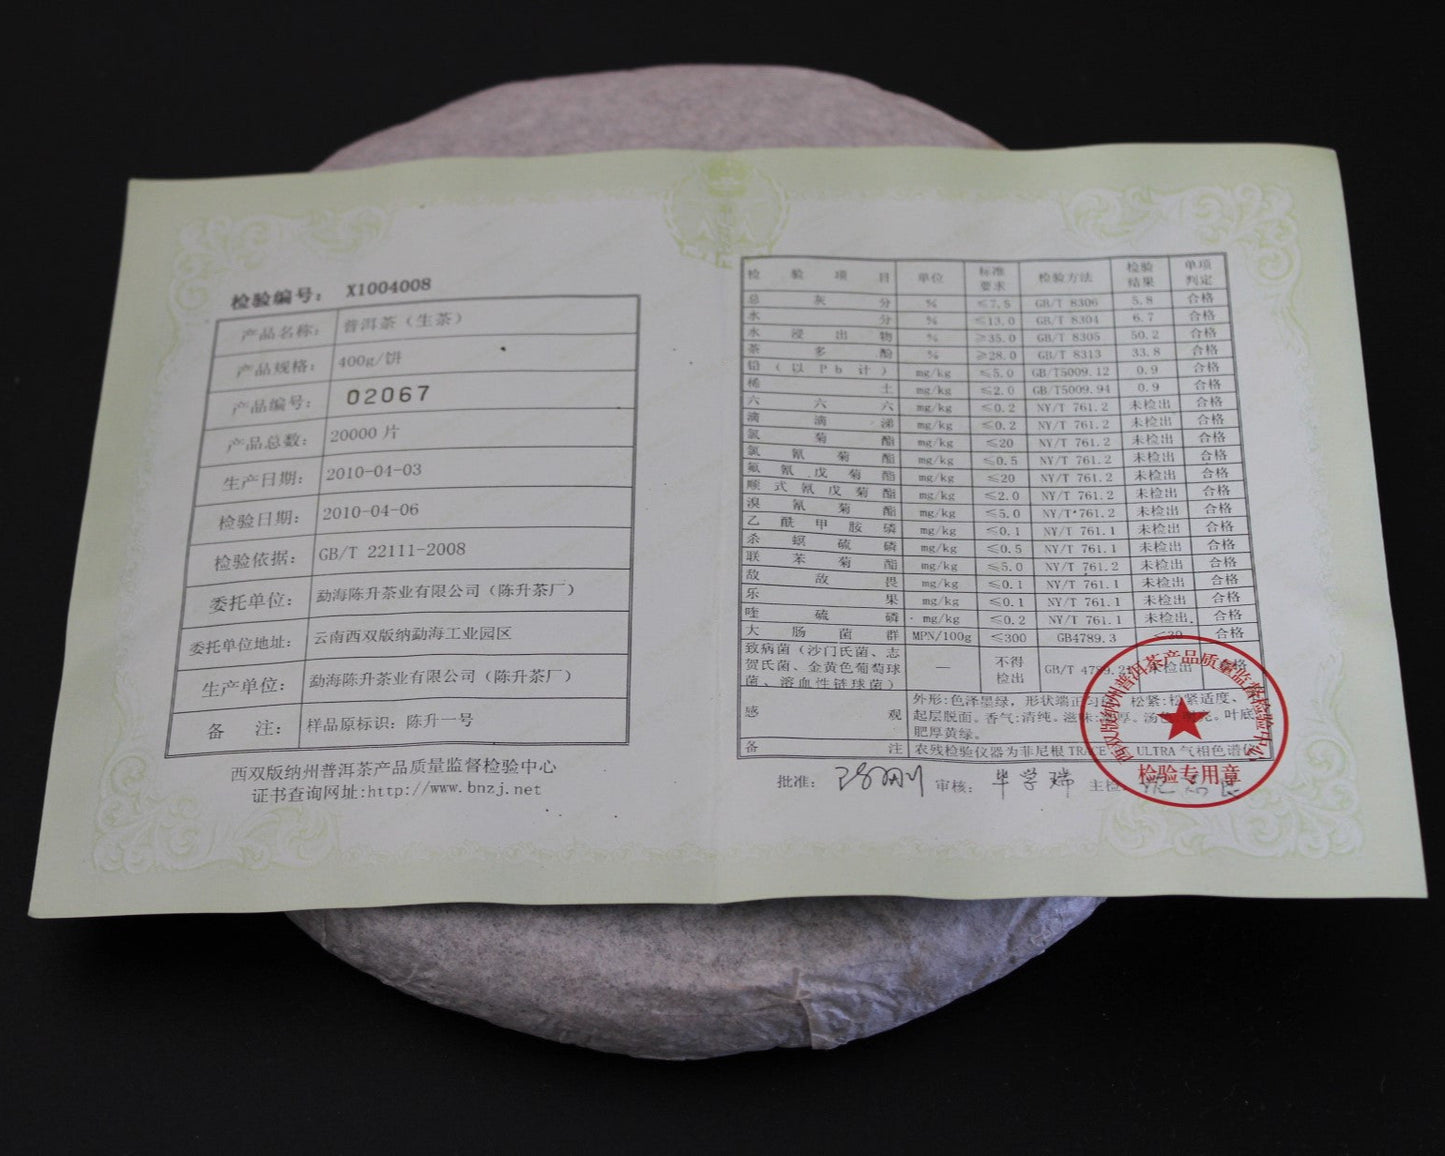 检验编号： X1004008
产品名称： 普洱茶（生茶）
产品规格： 400g/饼
产品编号： 02067
产品总数： 20000 片
生产日期： 2010-04-03
检验日期： 2010-04-06
检验依据： GB/T 22111-2008
委托单位： 勐海陈升茶业有限公司（陈升茶厂）
委托单位地址： 云南西双版纳勐海工业园区
生产单位： 勐海陈升茶业有限公司（陈升茶厂）
备 注： 样品原标识：陈升一号
西双版纳州普洱茶产品质量监督检验中心
证书查询网址:http://www.bnzj.net
检验项目 单位 标准要求 检验方法 检验结果 单项判定
总灰分 % ≤7.5 GB/T 8306 5.8 合格
水分 % ≤13.0 GB/T 8304 6.7 合格
水浸出物 % ≥35.0 GB/T 8305 50.2 合格
茶多酚 % ≥28.0 GB/T 8313 33.8 合格
铅（以Pb计） mg/kg ≤5.0 GB/T5009.12 0.9 合格
稀土 mg/kg ≤2.0 GB/T5009.94 0.9 合格
六六六 mg/kg ≤0.2 NY/T 761.2 未检出 合格
滴滴涕 mg/kg ≤0.2 NY/T 761.2 未检出 合格
氯菊酯 mg/kg ≤20 NY/T 761.2 未检出 合格
氯氰菊酯 mg/kg ≤0.5 NY/T 761.2 未检出 合格
氟氰戊菊酯 mg/kg ≤20 NY/T 761.2 未检出 合格
顺式氰戊菊酯 mg/kg ≤2.0 NY/T 761.2 未检出 合格
溴氰菊酯 mg/kg ≤5.0 NY/T 761.2 未检出 合格
乙酰甲胺磷 mg/kg ≤0.1 NY/T 761.1 未检出 合格
杀螟硫磷 mg/kg ≤0.5 NY/T 761.1 未检出 合格
联苯菊酯 mg/kg ≤5.0 NY/T 761.2 未检出 合格
敌敌畏 mg/kg ≤0.1 NY/T 761.1 未检出 合格
乐果 mg/kg ≤0.1 NY/T 761.1 未检出 合格
喹硫磷 mg/kg ≤0.2 NY/T 761.1 未检出 合格
大肠菌群 MPN/100g ≤300 GB4789.3 <30 合格
致病菌（沙门氏菌、志
贺氏菌、金黄色葡萄球
菌、溶血性链球菌） — 不得检出 GB/T 4789 未检出 合格
感观 外形:色泽墨绿，形状端正匀 松紧:松紧适度、
起层脱面。香气:清纯。滋味 厚。汤 叶底
肥厚黄绿。
备注 农残检验仪器为菲尼根 ULTRA 气相色谱仪
批准： 审核： 毕学瑞 主检
西双版纳州普洱茶产品质量监督检验中心
检验专用章